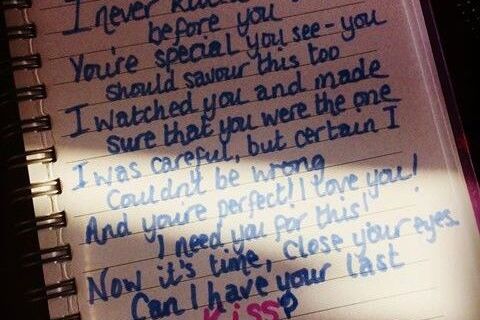 I never
before you
You're special you see - you
should savour this too
I watched you and made
sure that you were the one
I was careful, but certain I
Couldn't be wrong
And you're perfect! I love you!
I need you for this!
Now it's time, close your eyes.
Can I have your last
Kiss?